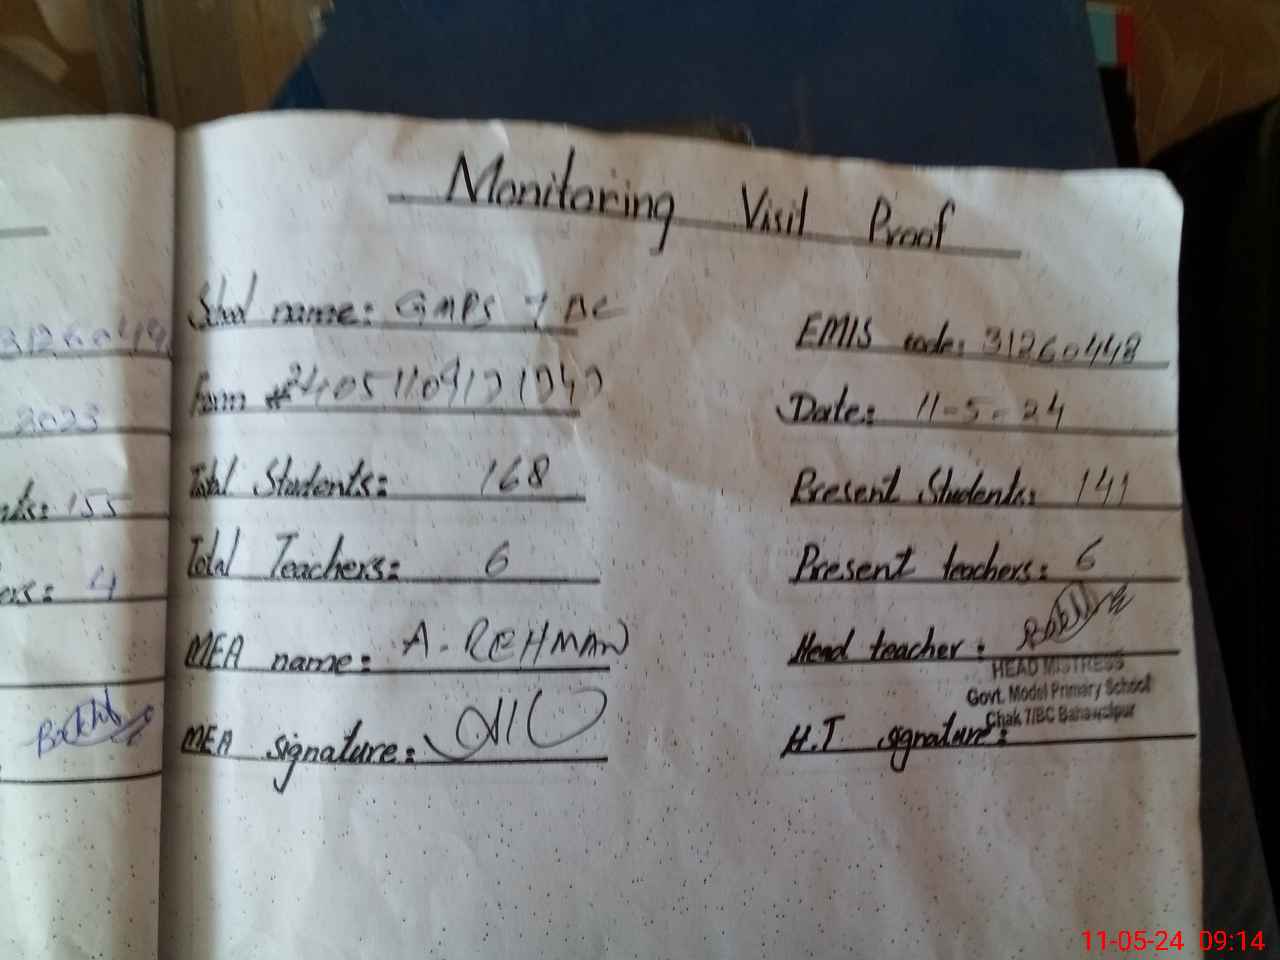 Monitoring Visit Proof
School name: GMPS 7 BC
EMIS code: 31260448
Form #
Date: 11-5-24
Total Students: 168
Present Students: 141
Total Teachers: 6
Present teachers: 6
MEA name: A. REHMAN
Head teacher:
HEAD MISTRESS
Govt. Model Primary School
Chak 7/BC Bahawalpur
MEA signature:
H.T signature:
2023
155
4
11-05-24 09:14